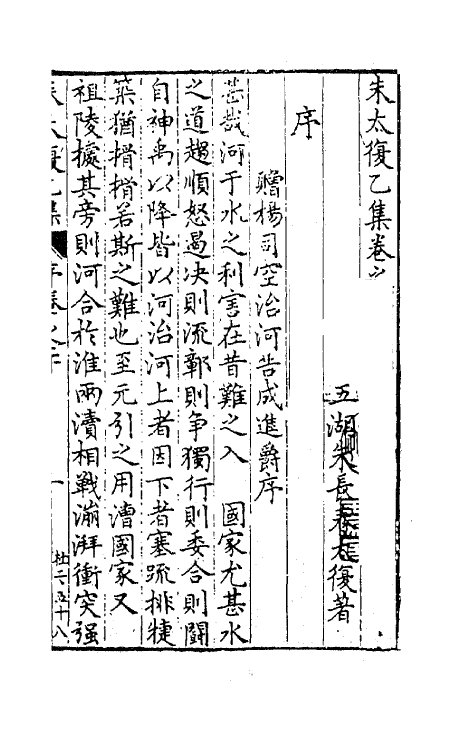 朱太復乙集卷之
五湖朱長春太復著
序
贈楊司空治河告成進爵序
甚哉河于水之利害在昔難之入　國家尤甚水
之道趨順怒遏决則流鄣則争獨行則委合則鬬
自神禹以降皆以河治河上者因下者塞疏排揵
築猶搰搰若斯之難也至元引之用漕國家又
祖陵據其旁則河合於淮兩瀆相戰漰湃衝突强
朱太復乙集　序卷之　一　杜六五十八